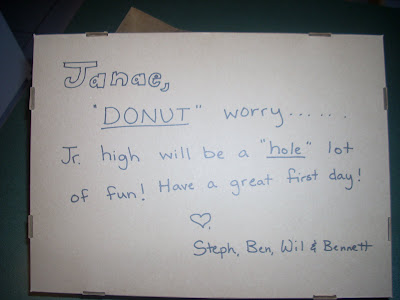 Janae,
"DONUT" worry......
Jr. high will be a "hole" lot
of fun! Have a great first day!
♡,
Steph, Ben, Wil & Bennett